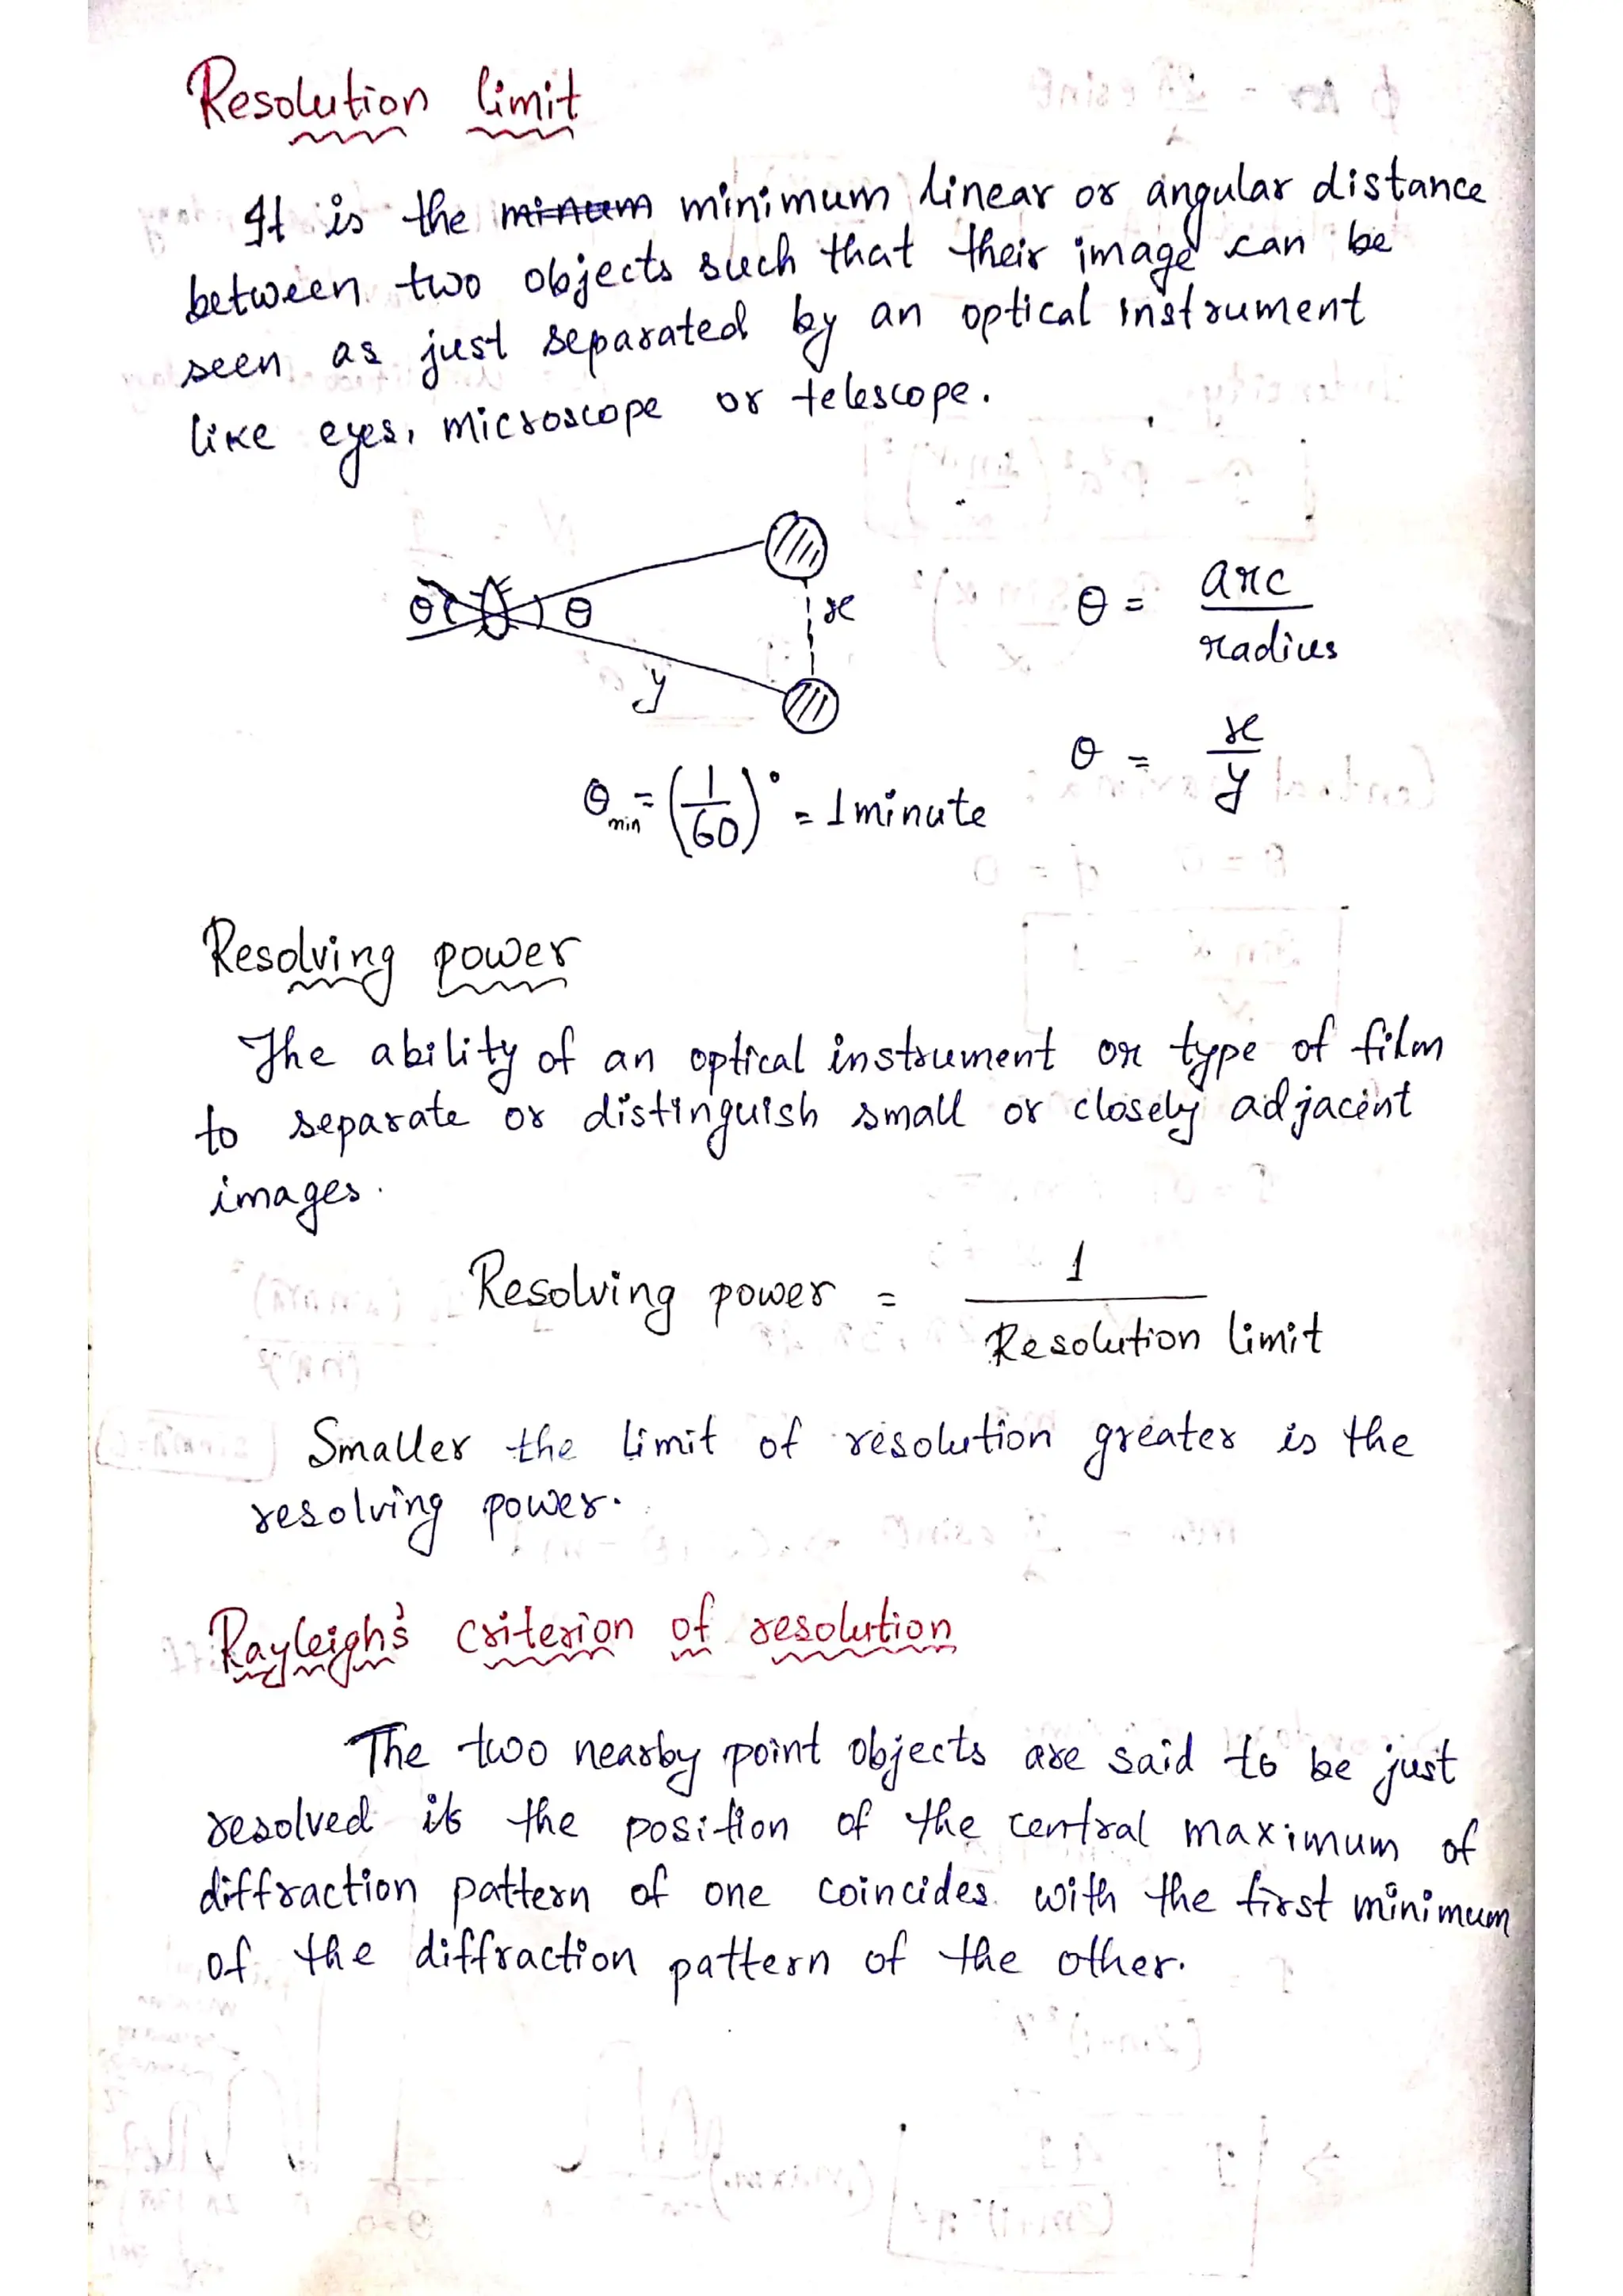 Resolution limit
It is the minum minimum linear or angular distance
between two objects such that their image can be
seen as just separated by an optical instrument
like eyes, microscope or telescope.
θ = arc / radius
θ x
y
θ = x / y
θmin = (1/60)° = 1 minute
Resolving power
The ability of an optical instrument or type of film
to separate or distinguish small or closely adjacent
images.
Resolving power = 1 / Resolution limit
Smaller the limit of resolution greater is the
resolving power.
Rayleigh's criterion of resolution
The two nearby point objects are said to be just
resolved if the position of the central maximum of
diffraction pattern of one coincides with the first minimum
of the diffraction pattern of the other.